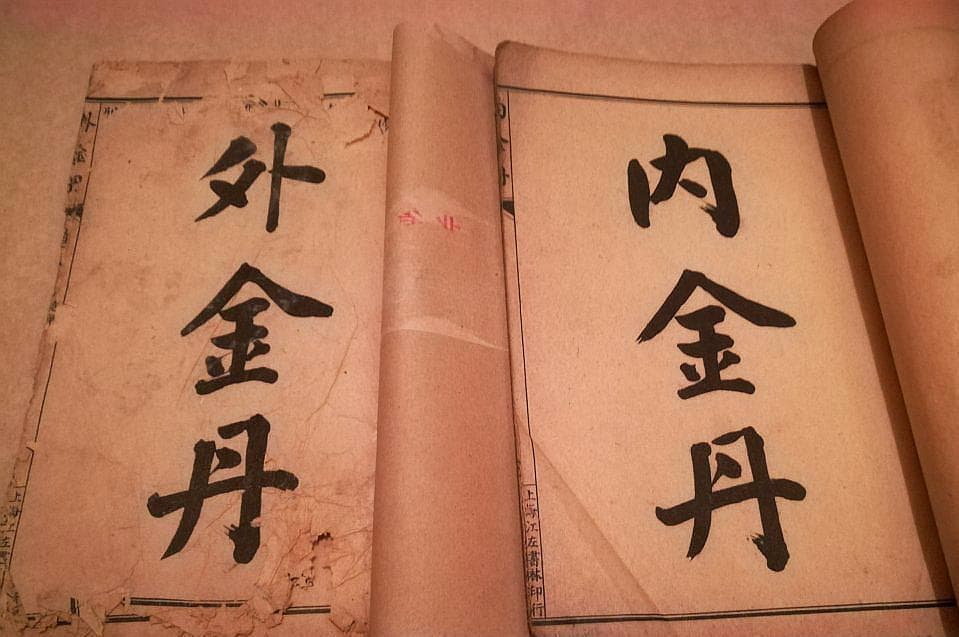 外金丹
内金丹
上海江左書林印行